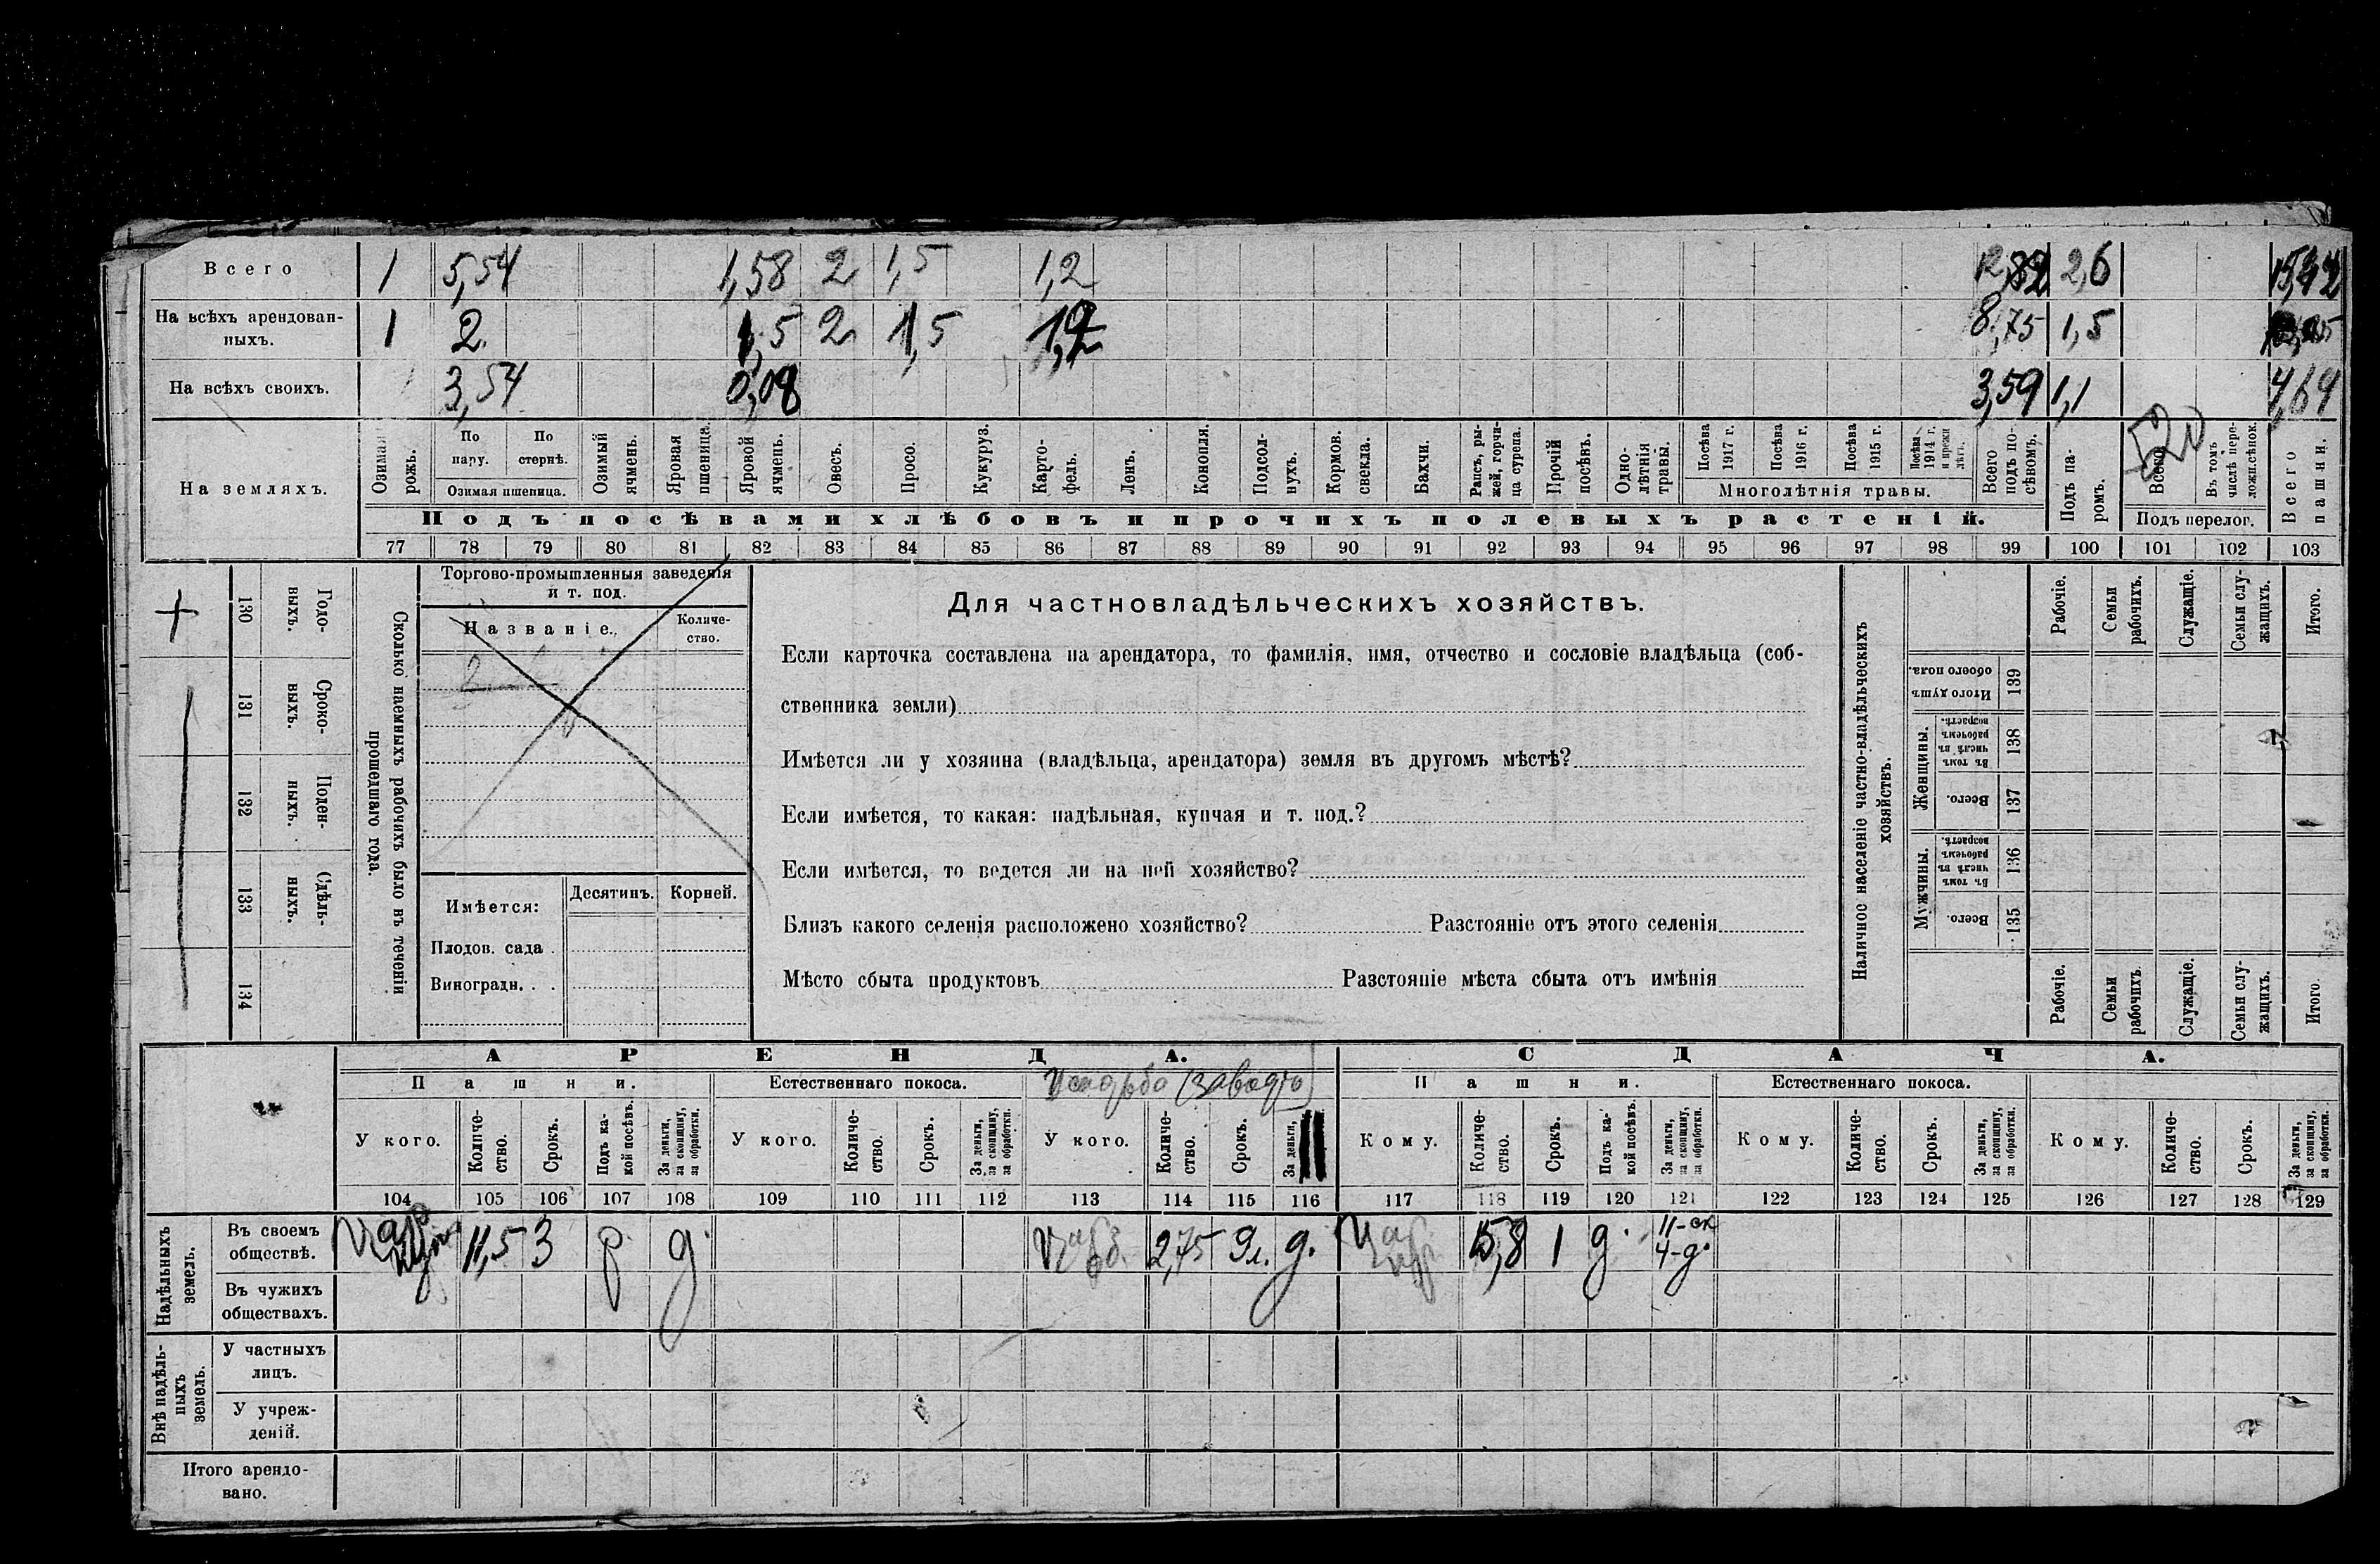 Всего 1 5,54 1,58 2 1,5 1,2 12,82 2,6
На всѣхъ арендован-
ныхъ. 1 2 1,5 2 1,5 8,75 1,5
На всѣхъ своихъ. 3,54 0,08 3,59 1,1 4,64
На земляхъ.
Озимая рожь.
По пару.
По стернѣ.
Озимая пшеница.
Озимый ячмень.
Яровая пшеница.
Яровой ячмень.
Овесъ.
Просо.
Кукуруз.
Карто-
фель.
Ленъ.
Конопля.
Подсол-
нухъ.
Кормов.
свекла.
Бахчи.
Рапсъ, ры-
жей, горчи-
ца сурепа.
Прочій
посѣвъ.
Одно-
лѣтнія
травы.
Посѣва
1917 г.
Посѣва
1916 г.
Посѣва
1915 г.
Посѣва
1914 г.
и прежн
лѣтъ.
Многолѣтнія травы.
Всего
подъ по-
сѣвомъ.
Подъ па-
ромъ.
50
Всего.
Въ томъ
числѣ пере-
ложн.сѣнок.
Подъ перелог.
Всего
пашни.
Подъ посѣвами хлѣбовъ и прочихъ полевыхъ растеній.
77 78 79 80 81 82 83 84 85 86 87 88 89 90 91 92 93 94 95 96 97 98 99 100 101 102 103
+
130 Годо-
выхъ.
131 Сроко-
выхъ.
132 Поден-
ныхъ.
133 Сдѣль-
ныхъ.
134
Сколько наемныхъ рабочихъ было въ теченіи
прошедшаго года.
Торгово-промышленныя заведенія
и т. под.
Названіе.
Количе-
ство.
Имѣется:
Десятинъ.
Корней.
Плодов. сада .
Виноградн. . .
Для частновладѣльческихъ хозяйствъ.
Если карточка составлена на арендатора, то фамилія, имя, отчество и сословіе владѣльца (соб-
ственника земли)
Имѣется ли у хозяина (владѣльца, арендатора) земля въ другомъ мѣстѣ?
Если имѣется, то какая: надѣльная, купчая и т. под.?
Если имѣется, то ведется ли на ней хозяйство?
Близъ какого селенія расположено хозяйство? Разстояніе отъ этого селенія
Мѣсто сбыта продуктовъ Разстояніе мѣста сбыта отъ имѣнія
Наличное населеніе частно-владѣльческихъ
хозяйствъ.
Рабочіе.
Семьи
рабочихъ.
Служащіе.
Семьи слу-
жащихъ.
Итого.
Итого душъ
обоего пола.
139
Женщины.
Въ томъ
числѣ въ
рабочемъ
возрастѣ.
138
Всего.
137
Мужчины.
Въ томъ
числѣ въ
рабочемъ
возрастѣ.
136
Всего.
135
Рабочіе.
Семьи
рабочихъ.
Служащіе.
Семьи слу-
жащихъ.
Итого.
АРЕНДА. СДАЧА.
Пашни. Естественнаго покоса. Пашни. Естественнаго покоса.
У кого.
Количе-
ство.
Срокъ.
Подъ ка-
кой посѣвъ.
За деньги,
за скопщину,
за обработки.
У кого.
Количе-
ство.
Срокъ.
За деньги,
за скопщину,
за обработки.
У кого.
Количе-
ство.
Срокъ.
За деньги,
Кому.
Количе-
ство.
Срокъ.
Подъ ка-
кой посѣвъ.
За деньги,
за скопщину,
за обработки.
Кому.
Количе-
ство.
Срокъ.
За деньги,
за скопщину,
за обработки.
Кому.
Количе-
ство.
Срокъ.
За деньги,
за скопщину,
за обработки.
104 105 106 107 108 109 110 111 112 113 114 115 116 117 118 119 120 121 122 123 124 125 126 127 128 129
Надѣльныхъ
земель.
Въ своемъ
обществѣ. 11,5 3 р д. 2,75 9л. д. 15,8 1 д. 11-ск
4-д.
Въ чужихъ
обществахъ.
Внѣ надѣль-
ныхъ
земель.
У частныхъ
лицъ.
У учреж-
деній.
Итого арендо-
вано.